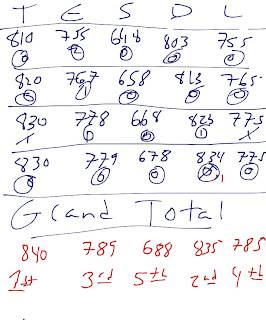 T E S D L
810 755 648 803 755
0 0 0 0 0
820 767 658 813 765
0 1 0 0 0
830 778 668 823 775
X 1 0 1 X
830 779 678 834 775
0 0 0 0 1 0
Grand Total
840 789 688 835 785
1st 3rd 5th 2nd 4th